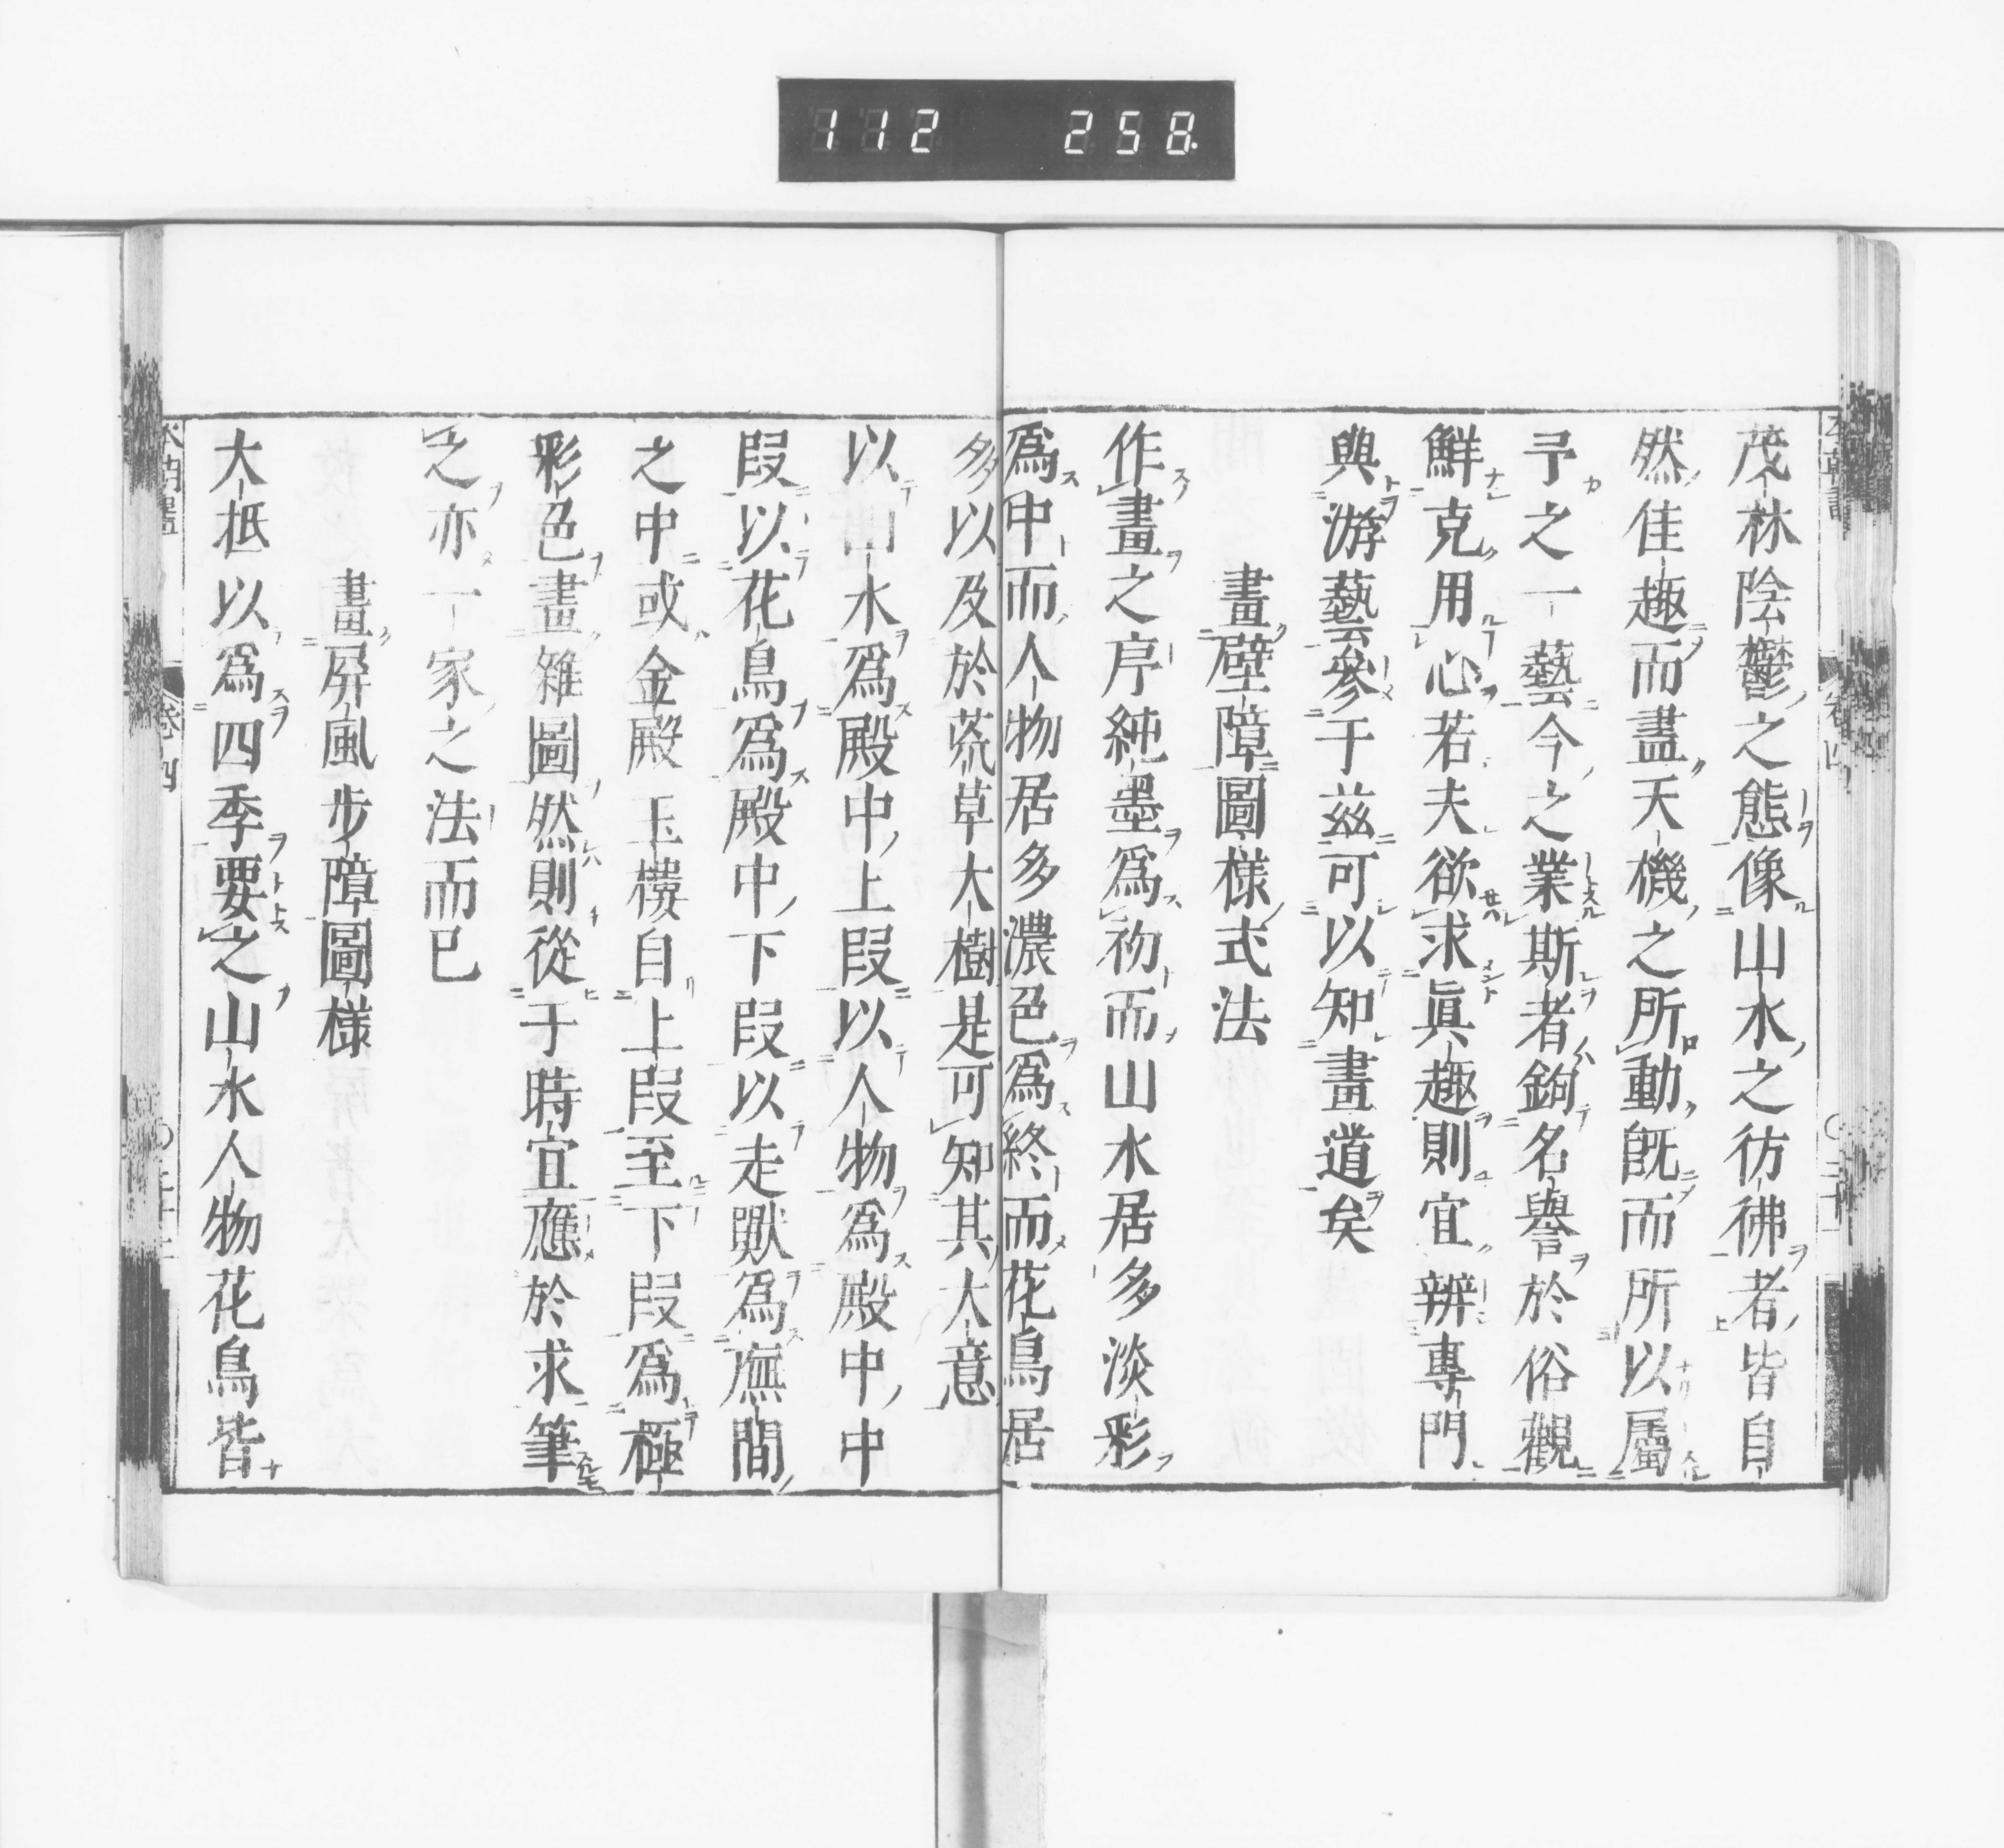 112 258.
茂林陰鬱之態像山水之彷彿者皆自
然佳趣而盡天機之所動既而所以屬
予之一藝今之業斯者鉤名譽於俗觀
鮮克用心若夫欲求眞趣則宜辨專門
與游藝參于茲可以知畫道矣
畫壁障圖樣式法
作畫之序純墨爲初而山水居多淡彩
爲中而人物居多濃色爲終而花鳥居
多以及於荒草大樹是可知其大意
以山水爲殿中上段以人物爲殿中中
段以花鳥爲殿中下段以走獸爲廡間
之中或金殿玉樓自上段至下段爲極
彩色畫雜圖然則從于時宜應於求筆
之亦一家之法而已
畫屏風步障圖樣
大抵以爲四季要之山水人物花鳥皆